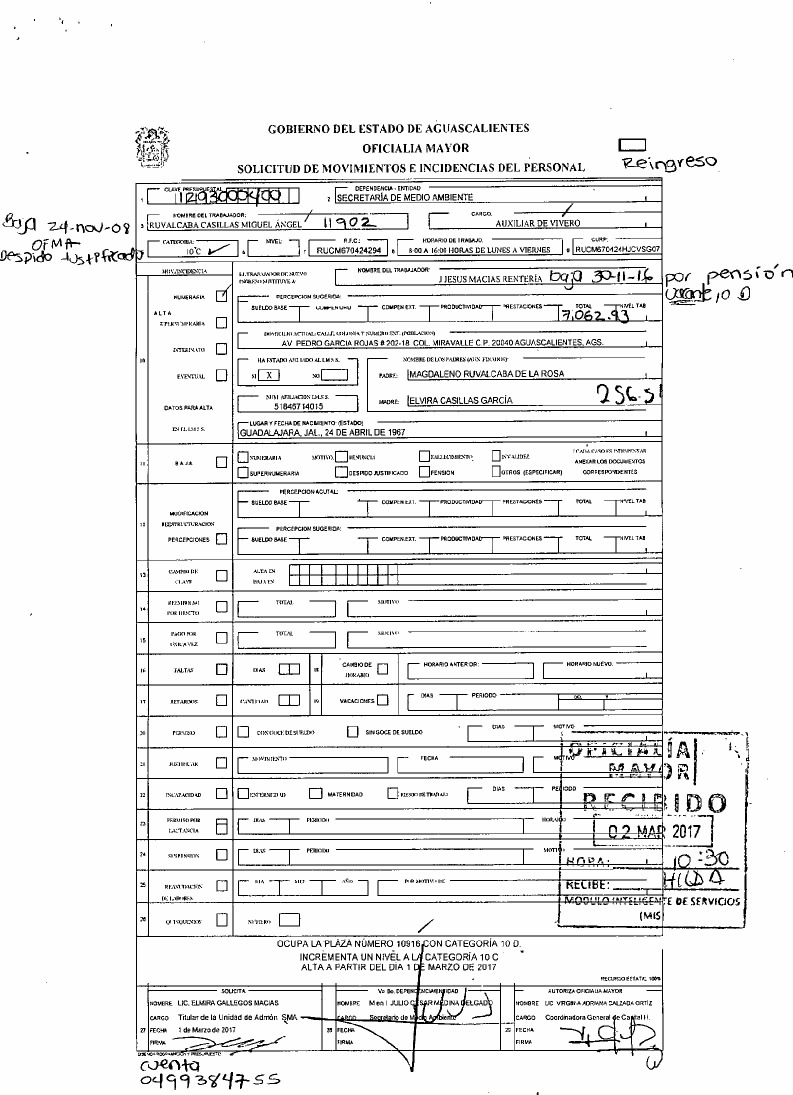 GOBIERNO DEL ESTADO DE AGUASCALIENTES
OFICIALIA MAYOR
SOLICITUD DE MOVIMIENTOS E INCIDENCIAS DEL PERSONAL
Reingreso
CLAVE PRESUPUESTAL
DEPENDENCIA - ENTIDAD
1 2 SECRETARÍA DE MEDIO AMBIENTE
NOMBRE DEL TRABAJADOR: CARGO:
Baja 24-nov-08
3 RUVALCABA CASILLAS MIGUEL ÁNGEL 11902 AUXILIAR DE VIVERO
OFMA
Despido Justificado
CATEGORIA: NIVEL: R.F.C.: HORARIO DE TRABAJO: CURP:
10°C 6 7 RUCM670424294 8 8:00 A 16:00 HORAS DE LUNES A VIERNES 9 RUCM670424HJCVSG07
MOV./INCIDENCIA EL TRABAJADOR DE NUEVO INGRESO SUSTITUYE A: NOMBRE DEL TRABAJADOR:
J JESUS MACIAS RENTERÍA baja 30-11-16 por pensión
NUMERARIA PERCEPCION SUGERIDA:
ALTA SUELDO BASE COMPEN.EXT. PRODUCTIVIDAD PRESTACIONES TOTAL NIVEL TAB
7,062.93
SUPERNUMERARIA
DOMICILIO ACTUAL: CALLE, COLONIA Y NUMERO EXT. (POBLACION)
INTERINATO AV. PEDRO GARCIA ROJAS # 202-18 COL. MIRAVALLE C.P. 20040 AGUASCALIENTES, AGS.
10 HA ESTADO AFILIADO AL I.M.S.S. NOMBRE DE LOS PADRES (AUN FINADOS):
EVENTUAL SI X NO PADRE: MAGDALENO RUVALCABA DE LA ROSA
NUM. AFILIACION I.M.S.S.
DATOS PARA ALTA 51846714015 MADRE: ELVIRA CASILLAS GARCÍA
EN EL I.M.S.S. LUGAR Y FECHA DE NACIMIENTO (ESTADO)
GUADALAJARA, JAL., 24 DE ABRIL DE 1967
11 BAJA NUMERARIA MOTIVO: RENUNCIA FALLECIMIENTO INVALIDEZ
ANEXAR LOS DOCUMENTOS
SUPERNUMERARIA DESPIDO JUSTIFICADO PENSION OTROS (ESPECIFICAR) CORRESPONDIENTES
PERCEPCION ACUTAL:
SUELDO BASE COMPEN.EXT. PRODUCTIVIDAD PRESTACIONES TOTAL NIVEL TAB
MODIFICACION
12 REESTRUCTURACION PERCEPCION SUGERIDA:
PERCEPCIONES SUELDO BASE COMPEN.EXT. PRODUCTIVIDAD PRESTACIONES TOTAL NIVEL TAB
13 CAMBIO DE CLAVE ALTA EN
BAJA EN
14 REEMBOLSO POR DESCTO TOTAL MOTIVO
15 PAGO POR UNICA VEZ TOTAL MOTIVO
16 FALTAS DIAS 18 CAMBIO DE HORARIO HORARIO ANTERIOR: HORARIO NUEVO:
17 RETARDOS CANTIDAD 19 VACACIONES DIAS PERIODO
20 PERMISO CON GOCE DE SUELDO SIN GOCE DE SUELDO DIAS MOTIVO
21 RECTIFICAR MOVIMIENTO FECHA MOTIVO
22 INCAPACIDAD ENFERMEDAD MATERNIDAD RIESGO DE TRABAJO DIAS PERIODO
23 PERMISO POR LACTANCIA DIAS PERIODO HORARIO
24 SUSPENSION DIAS PERIODO MOTIVO
25 REANUDACION DE LABORES DIA MES AÑO POR MOTIVO DE
26 QUINQUENIOS NUMERO
OFICIALÍA
MAYOR
RECIBIDO
02 MAR 2017
HORA: 10:30
RECIBE: HILDA
MODULO INTELIGENTE DE SERVICIOS
(MIS)
OCUPA LA PLAZA NÚMERO 10916 CON CATEGORÍA 10 D.
INCREMENTA UN NIVEL A LA CATEGORÍA 10 C
ALTA A PARTIR DEL DIA 1 DE MARZO DE 2017
RECURSO ESTATAL 100%
SOLICITA Vo Bo. DEPENDENCIA/ENTIDAD AUTORIZA OFICIALIA MAYOR
NOMBRE LIC. ELMIRA GALLEGOS MACIAS NOMBRE M en I JULIO CÉSAR MEDINA DELGADO NOMBRE LIC VIRGINIA ADRIANA CALZADA ORTÍZ
CARGO Titular de la Unidad de Admón. SMA CARGO Secretario de Medio Ambiente CARGO Coordinadora General de Capital H.
27 FECHA 1 de Marzo de 2017 28 FECHA 29 FECHA
FIRMA FIRMA FIRMA
cuenta
0499384755